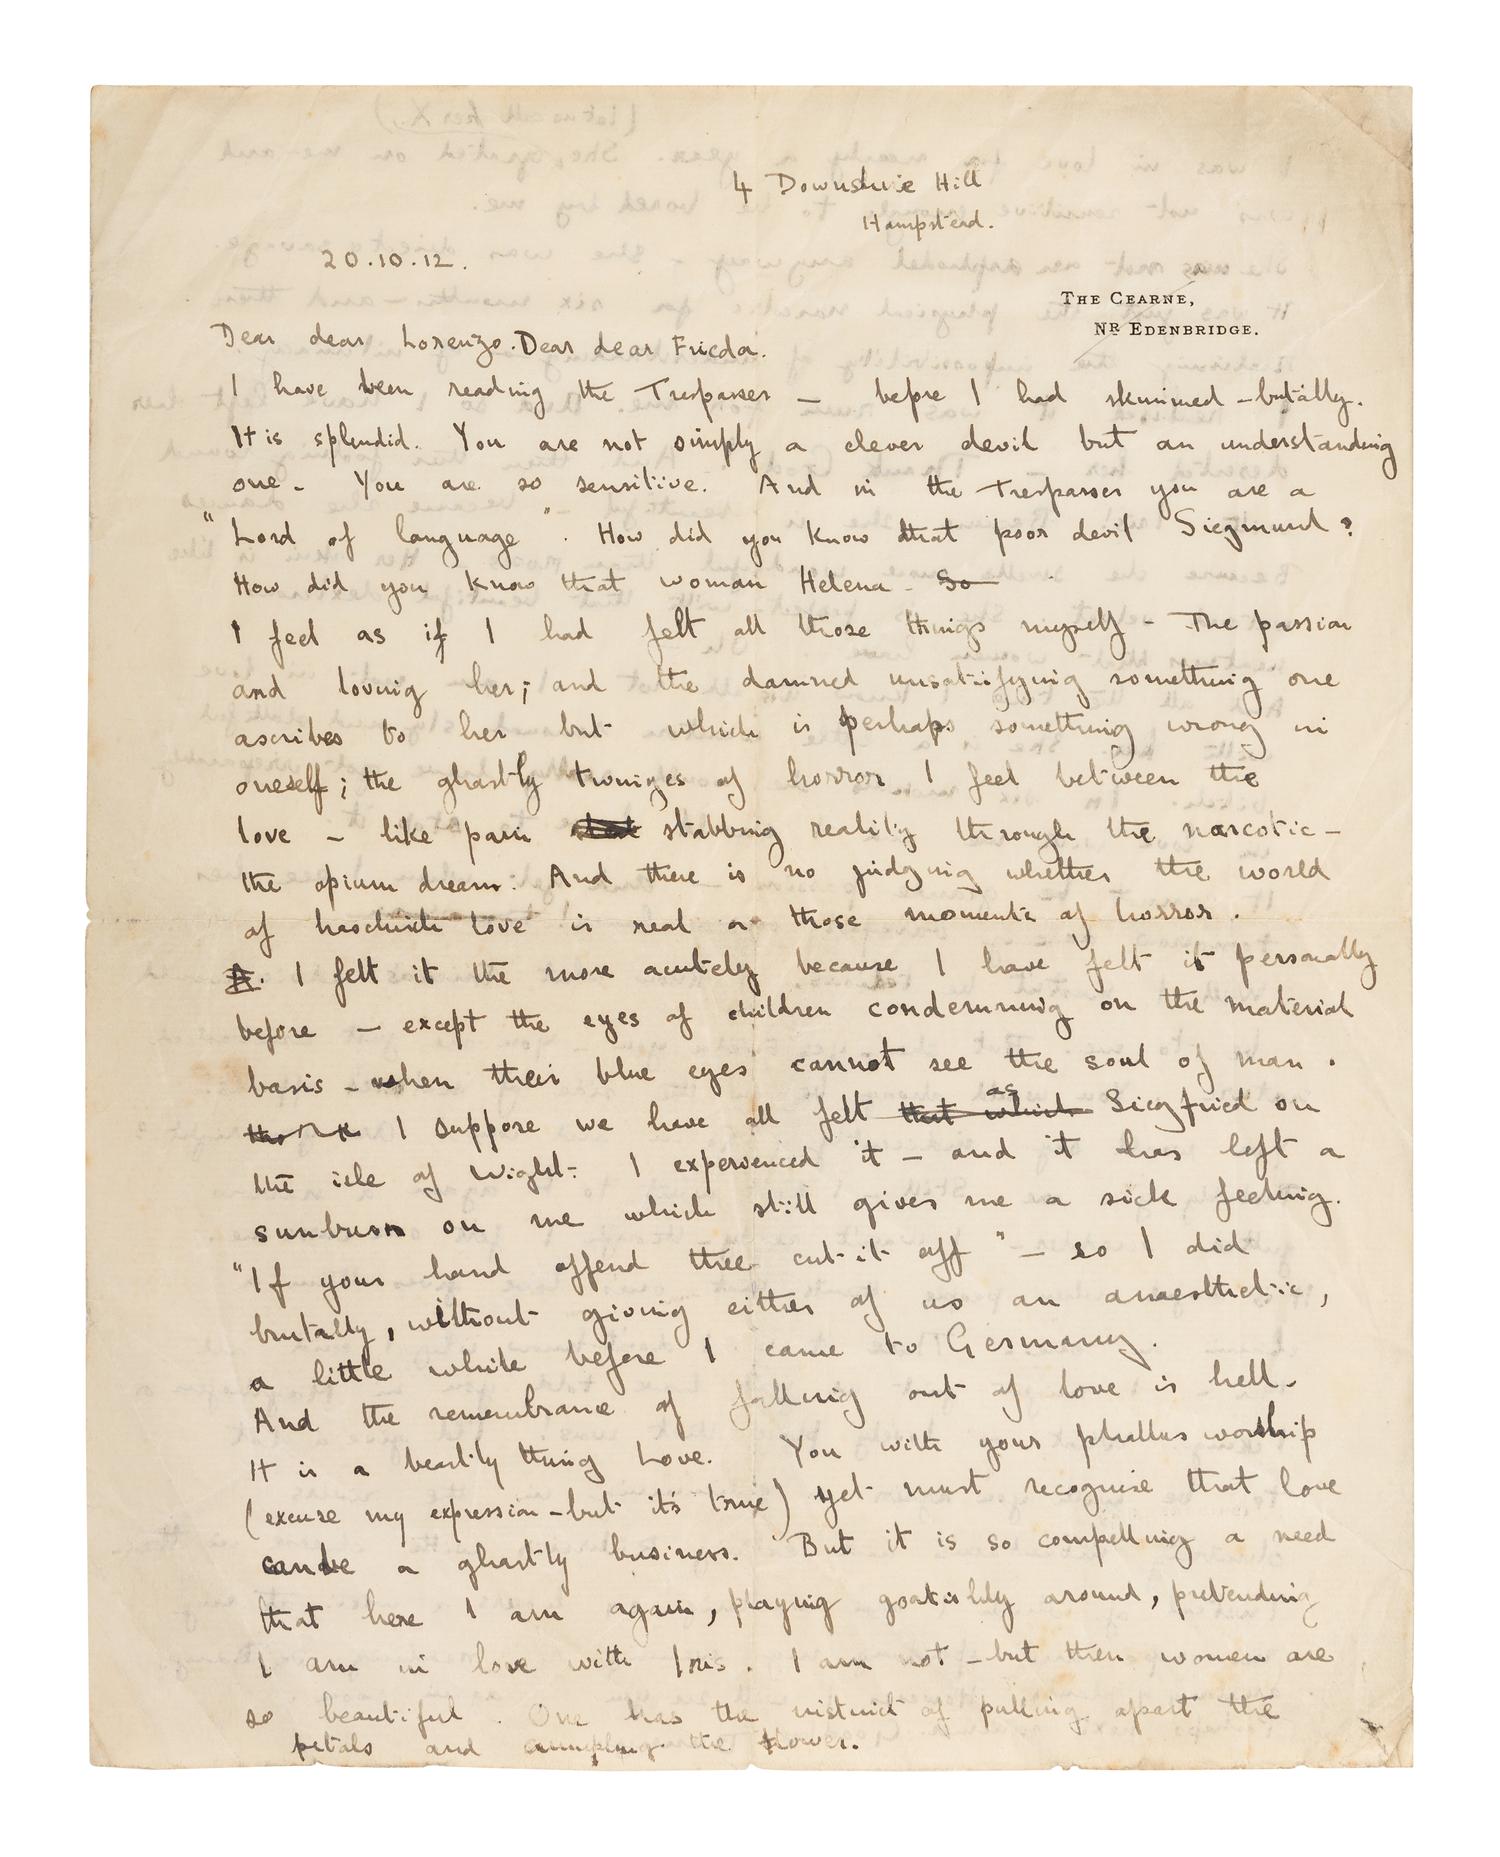 4 Downshire Hill
Hampstead.
20.10.12.
THE CEARNE,
NR EDENBRIDGE.
Dear dear Lorenzo. Dear dear Frieda.
I have been reading the Trespasser — before I had skimmed – brutally.
It is splendid. You are not simply a clever devil but an understanding
one. You are so sensitive. And in the Trespasser you are a
"Lord of language". How did you know that poor devil Siegmund?
How did you know that woman Helena. So
I feel as if I had felt all those things myself – The passion
and loving her; and the damned unsatisfying something one
ascribes to her but which is perhaps something wrong in
oneself; the ghastly twinges of horror I feel between the
love – like pain stabbing reality through the narcotic –
the opium dream. And there is no judging whether the world
of haschisch love is real or those moments of horror.
A. I felt it the more acutely because I have felt it personally
before – except the eyes of children condemning on the material
basis – when their blue eyes cannot see the soul of man.
I suppose we have all felt that which as Siegfried on
the isle of Wight: I experienced it – and it has left a
sunburn on me which still gives me a sick feeling.
"If your hand offend thee cut it off" – so I did
brutally, without giving either of us an anaesthetic,
a little while before I came to Germany.
And the remembrance of falling out of love is hell.
It is a beastly thing Love. You with your phallus worship
(excuse my expression – but it's true) yet must recognise that love
can be a ghastly business. But it is so compelling a need
that here I am again, playing goatishly around, pretending
I am in love with Iris. I am not – but then women are
so beautiful. One has the instinct of pulling apart the
petals and crumpling the flower.